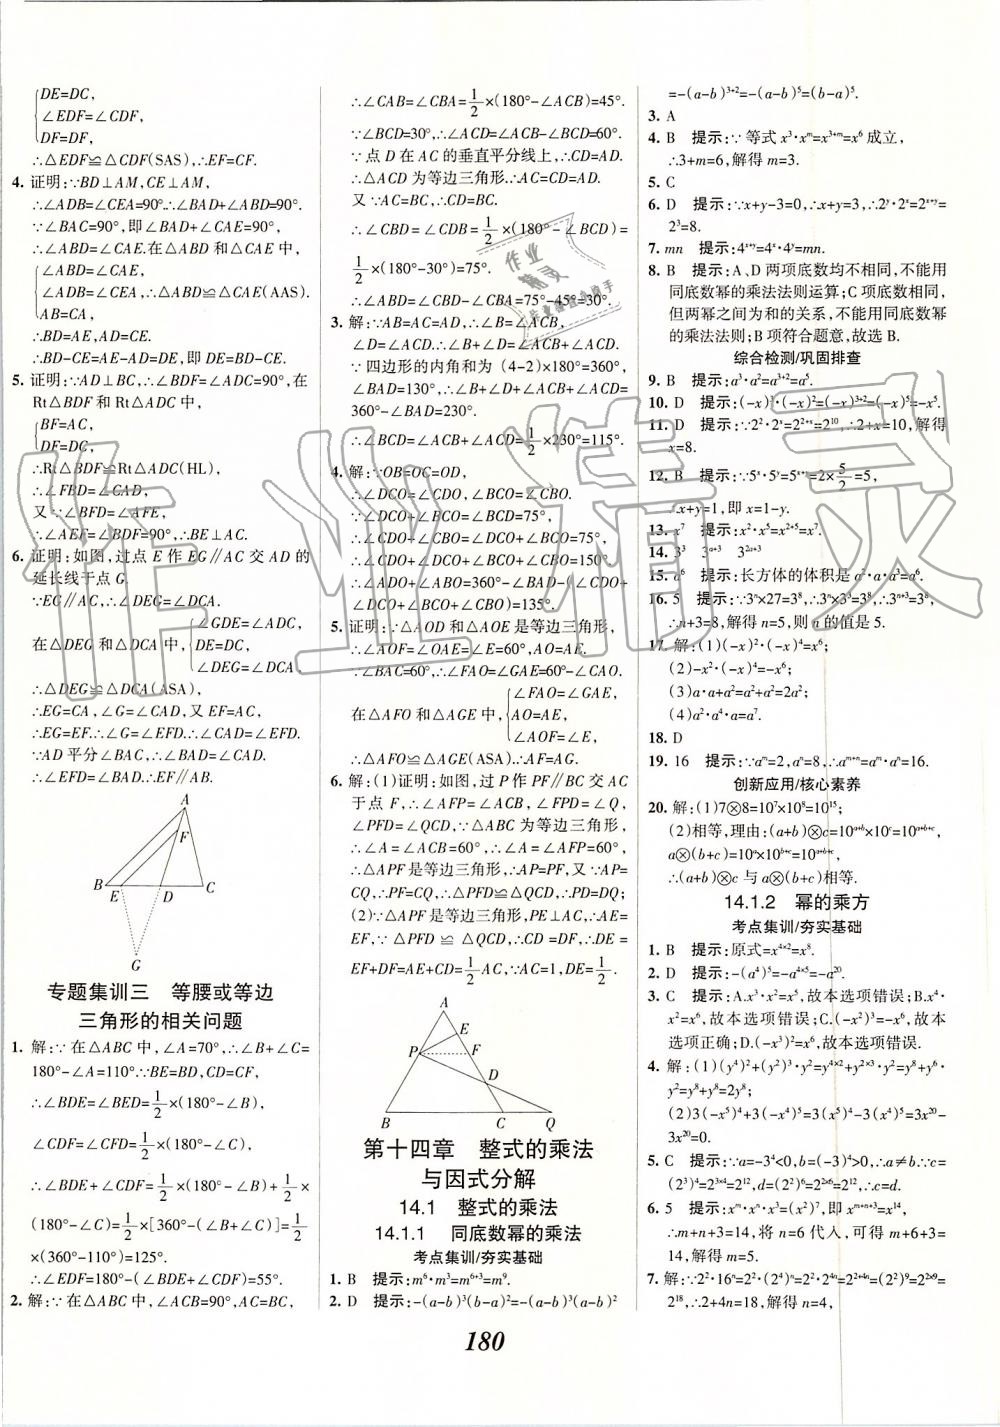 DE=DC,
∠EDF=∠CDF,
DF=DF,
∴△EDF≌△CDF(SAS),∴EF=CF.
4. 证明:∵BD⊥AM,CE⊥AM,
∴∠ADB=∠CEA=90°.∴∠BAD+∠ABD=90°.
∵∠BAC=90°,即∠BAD+∠CAE=90°,
∴∠ABD=∠CAE.在△ABD和△CAE中,
∠ABD=∠CAE,
∠ADB=∠CEA,∴△ABD≌△CAE(AAS).
AB=CA,
∴BD=AE,AD=CE.
∴BD-CE=AE-AD=DE,即DE=BD-CE.
5. 证明:∵AD⊥BC,∴∠BDF=∠ADC=90°,在
Rt△BDF和Rt△ADC中,
BF=AC,
DF=DC,
∴Rt△BDF≌Rt△ADC(HL),
∴∠FBD=∠CAD,
又∵∠BFD=∠AFE,
∴∠AEF=∠BDF=90°,∴BE⊥AC.
6. 证明:如图,过点E作EG∥AC交AD的
延长线于点G.
∵EG∥AC,∴∠DEG=∠DCA.
在△DEG和△DCA中,
∠GDE=∠CDA,
DE=DC,
∠DEG=∠DCA
∴△DEG≌△DCA(ASA).
∴EG=CA,∠G=∠CAD,又EF=AC,
∴EG=EF.∴∠G=∠EFD.∴∠CAD=∠EFD.
∵AD平分∠BAC,∴∠BAD=∠CAD.
∴∠EFD=∠BAD,∴EF∥AB.
A
F
B E D C
G
专题集训三 等腰或等边
三角形的相关问题
1. 解:∵在△ABC中,∠A=70°,∴∠B+∠C=
180°-∠A=110°.∵BE=BD,CD=CF,
∴∠BDE=∠BED=1/2×(180°-∠B),
∠CDF=∠CFD=1/2×(180°-∠C),
∴∠BDE+∠CDF=1/2×(180°-∠B)+1/2×
(180°-∠C)=1/2×[360°-(∠B+∠C)]=1/2
×(360°-110°)=125°.
∴∠EDF=180°-(∠BDE+∠CDF)=55°.
2. 解:∵在△ABC中,∠ACB=90°,AC=BC,
∴∠CAB=∠CBA=1/2×(180°-∠ACB)=45°.
∵∠BCD=30°,∴∠ACD=∠ACB-∠BCD=60°.
∵点D在AC的垂直平分线上,∴AD=CD.
∴△ACD为等边三角形.∴AC=CD=AD.
又∵AC=BC,∴CD=BC.
∴∠CBD=∠CDB=1/2×(180°-∠BCD)=
1/2×(180°-30°)=75°.
∴∠ABD=∠CBD-∠CBA=75°-45°=30°.
3. 解:∵AB=AC=AD,∴∠B=∠ACB,
∠D=∠ACD.
∵四边形的内角和为(4-2)×180°=360°,
∠BAD=130°,∴∠B+∠D+∠ACB+∠ACD=
360°-∠BAD=230°.
∴∠BCD=∠ACB+∠ACD=1/2×230°=115°.
4. 解:∵OB=OC=OD,
∴∠DCO=∠CDO,∠BCO=∠CBO.
∵∠DCO+∠BCO=∠BCD=75°,
∴∠CDO+∠CBO=∠DCO+∠BCO=75°,
∴∠CDO+∠DCO+∠BCO+∠CBO=150°
∴∠ADO+∠ABO=360°-∠BAD-(∠CDO+
∠DCO+∠BCO+∠CBO)=135°.
5. 证明:∵△AOD和△AOE是等边三角形,
∴∠AOF=∠OAE=∠E=60°,AO=AE.
∵∠BAC=60°,∴∠FAO=∠GAE=60°-∠CAO.
在△AFO和△AGE中,
∠FAO=∠GAE,
AO=AE,
∠AOF=∠E
∴△AFO≌△AGE(ASA).∴AF=AG.
6. 解:(1)证明:如图,过P作PF∥BC交AC
于点F,∴∠AFP=∠ACB,∠FPD=∠Q,
∠PFD=∠QCD,∵△ABC为等边三角形,
∴∠A=∠ACB=60°,∴∠A=∠AFP=60°,
∴△APF是等边三角形,∴AP=PF,又∵AP=
CQ,∴PF=CQ,∴△PFD≌△QCD,∴PD=DQ;
(2)∵△APF是等边三角形,PE⊥AC,∴AE=
EF,∵△PFD≌△QCD,∴CD=DF,∴DE=
EF+DF=AE+CD=1/2AC,∵AC=1,∴DE=1/2.
A
E
P F
D
B C Q
第十四章 整式的乘法
与因式分解
14.1 整式的乘法
14.1.1 同底数幂的乘法
考点集训/夯实基础
1. B 提示:m⁶·m³=m⁶⁺³=m⁹.
2. D 提示:-(a-b)³(b-a)²=-(a-b)³(a-b)²
=-(a-b)³⁺²=-(a-b)⁵=(b-a)⁵.
3. A
4. B 提示:∵等式x³·xᵐ=x³⁺ᵐ=x⁶成立,
∴3+m=6,解得m=3.
5. C
6. D 提示:∵x+y-3=0,∴x+y=3,∴2ʸ·2ˣ=2ˣ⁺ʸ=
2³=8.
7. mn 提示:4ˣ⁺ʸ=4ˣ·4ʸ=mn.
8. B 提示:A、D两项底数均不相同,不能用
同底数幂的乘法法则运算;C项底数相同,
但两幂之间为和的关系,不能用同底数幂
的乘法法则;B项符合题意,故选B.
综合检测/巩固排查
9. B 提示:a³·a²=a³⁺²=a⁵.
10. D 提示:(-x)³·(-x)²=(-x)³⁺²=(-x)⁵=-x⁵.
11. D 提示:∵2²·2ˣ=2²⁺ˣ=2¹⁰,∴2+x=10,解得
x=8.
12. B 提示:∵5ˣ·5ʸ=5ˣ⁺ʸ=2×5/2=5,
∴x+y=1,即x=1-y.
13. x⁷ 提示:x²·x⁵=x²⁺⁵=x⁷.
14. 3³ 3ᵃ⁺³ 3²ᵃ⁺³
15. a⁶ 提示:长方体的体积是a²·a·a³=a⁶.
16. 5 提示:∵3ⁿ×27=3⁸,∴3ⁿ×3³=3⁸,3ⁿ⁺³=3⁸,
∴n+3=8,解得n=5,则n的值是5.
17. 解:(1)(-x)²·(-x)⁴=x⁶;
(2)-x²·(-x)⁴=-x⁶;
(3)a·a+a²=a²+a²=2a²;
(4)a²·a⁴·a=a⁷.
18. D
19. 16 提示:∵aᵐ=2,aⁿ=8,∴aᵐ⁺ⁿ=aᵐ·aⁿ=16.
创新应用/核心素养
20. 解:(1)7⊗8=10⁷×10⁸=10¹⁵;
(2)相等,理由:(a+b)⊗c=10ᵃ⁺ᵇ×10ᶜ=10ᵃ⁺ᵇ⁺ᶜ,
a⊗(b+c)=10ᵃ×10ᵇ⁺ᶜ=10ᵃ⁺ᵇ⁺ᶜ,
∴(a+b)⊗c与a⊗(b+c)相等.
14.1.2 幂的乘方
考点集训/夯实基础
1. B 提示:原式=x⁴ˣ²=x⁸.
2. D 提示:-(a⁴)⁵=-a⁴ˣ⁵=-a²⁰.
3. C 提示:A.x³·x²=x⁵,故本选项错误;B.x⁴·
x²=x⁶,故本选项错误;C.(-x²)³=-x⁶,故本
选项正确;D.(-x³)²=x⁶,故本选项错误.
4. 解:(1)(y⁴)²+(y²)³·y²=y⁴ˣ²+y²ˣ³·y²=y⁸+y⁶·
y²=y⁸+y⁸=2y⁸;
(2)3(-x⁵)⁴+3(-x⁴)⁵=3(x⁵)⁴-3(x⁴)⁵=3x²⁰-
3x²⁰=0.
5. C 提示:∵a=-3⁴<0,b=(-3)⁴>0,∴a≠b.∵c=
(2³)⁴=2³ˣ⁴=2¹²,d=(2²)⁶=2²ˣ⁶=2¹²,∴c=d.
6. 5 提示:xᵐ·xⁿ·x³=(x²)⁷,即xᵐ⁺ⁿ⁺³=x¹⁴,
∴m+n+3=14,将n=6代人,可得m+6+3=
14,解得m=5.
7. 解:∵2²·16ⁿ=2²·(2⁴)ⁿ=2²·2⁴ⁿ=2²⁺⁴ⁿ=(2²)⁹=2²ˣ⁹=
2¹⁸,∴2+4n=18,解得n=4,
180
作业精灵
作业
精灵